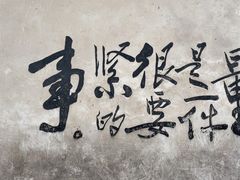 是一件
很要
紧的
事。